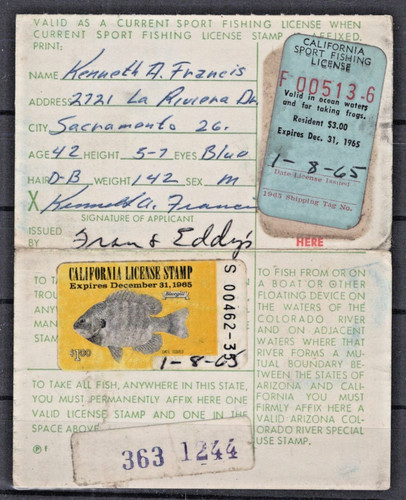 VALID AS A CURRENT SPORT FISHING LICENSE WHEN
CURRENT SPORT FISHING LICENSE STAMP IS AFFIXED.
PRINT:
NAME Kenneth A. Francis
ADDRESS 2721 La Riviera Dr
CITY Sacramento 26.
AGE 42 HEIGHT 5-7 EYES Blue
HAIR D-B WEIGHT 142 SEX M
X Kenneth A. Francis
SIGNATURE OF APPLICANT
ISSUED BY Fran & Eddy's
CALIFORNIA
SPORT FISHING
LICENSE
F 00513-6
Valid in ocean waters
and for taking frogs.
Resident $3.00
Expires Dec. 31, 1965
1-8-65
Date License Issued
1965 Shipping Tag No.
HERE
CALIFORNIA LICENSE STAMP
Expires December 31, 1965
$1.00
1-8-65
S 00462-35
TO TAKE ALL FISH, ANYWHERE IN THIS STATE,
YOU MUST PERMANENTLY AFFIX HERE ONE
VALID LICENSE STAMP AND ONE IN THE
SPACE ABOVE.
TO FISH FROM OR ON
A BOAT OR OTHER
FLOATING DEVICE ON
THE WATERS OF THE
COLORADO RIVER
AND ON ADJACENT
WATERS WHERE THAT
RIVER FORMS A MU-
TUAL BOUNDARY BE-
TWEEN THE STATES OF
ARIZONA AND CALI-
FORNIA, YOU MUST
FIRMLY AFFIX HERE A
VALID ARIZONA COL-
ORADO RIVER SPECIAL
USE STAMP.
363 1244